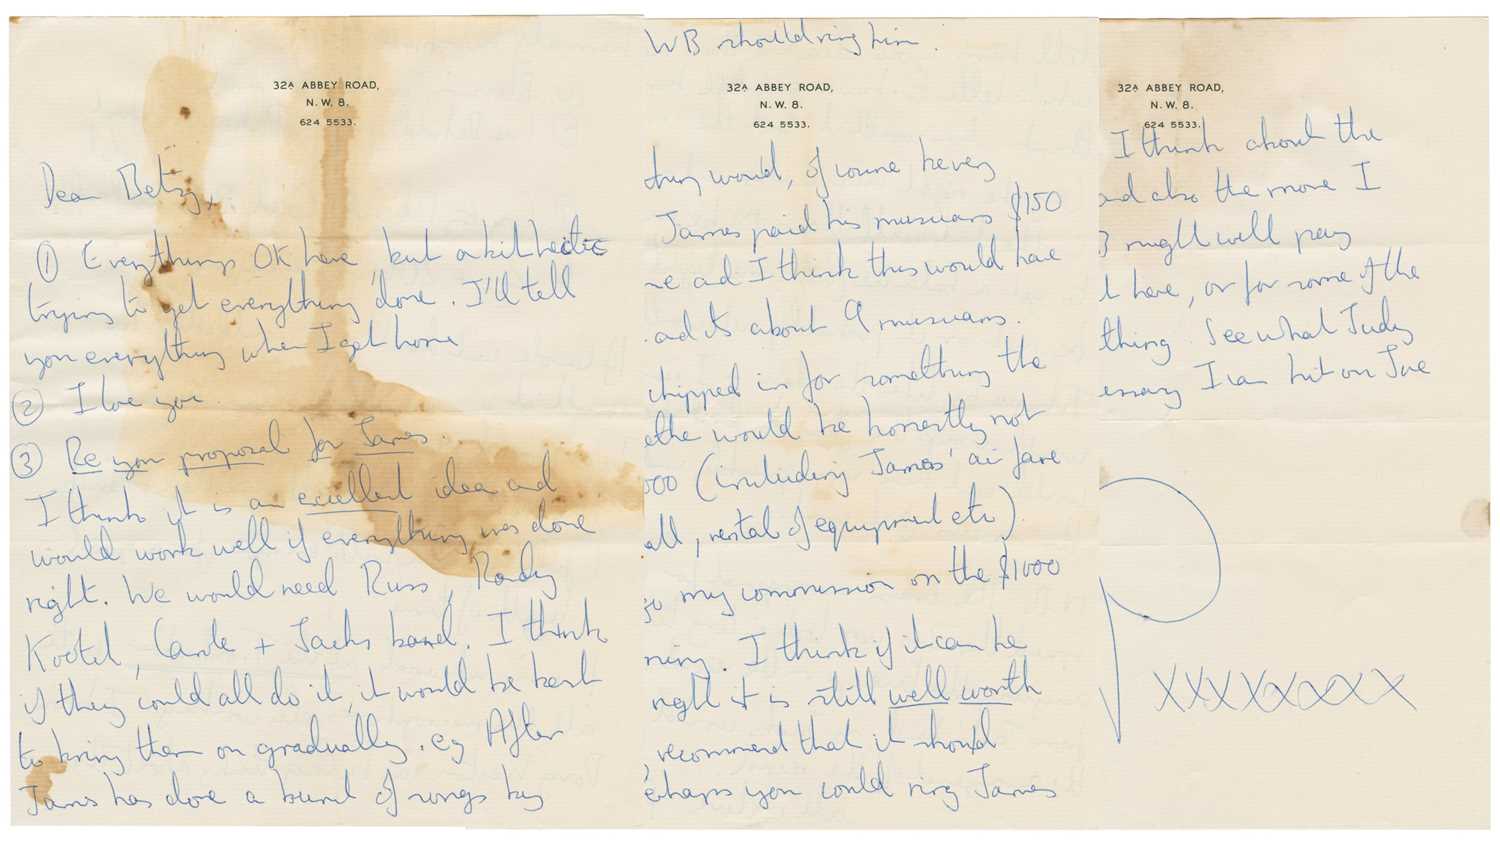 32A ABBEY ROAD,
N. W. 8.
624 5533.
Dear Betsy,
① Everythings OK here, but a bit hectic
trying to get everything done. I'll tell
you everything when I get home
② I love you.
③ Re your proposal for James.
I think it is an excellent idea and
would work well if everything was done
right. We would need Russ, Randy
Kootch, Carole + Jack's band. I think
if they could all do it, it would be best
to bring them on gradually. eg After
James has done a bunch of songs by
WB should ring him.
32A ABBEY ROAD,
N. W. 8.
624 5533.
thing would, of course, be very
James paid his musicians $150
me ad I think this would have
ad it's about 9 musicians.
chipped in for something the
ethe would be honestly not
000 (including James' air fare
all, rental of equipment etc).
go my commission on the $1000
ning. I think if it can be
right it is still well worth
recommend that it should
erhaps you could ring James
32A ABBEY ROAD,
N. W. 8.
624 5533.
I think about the
and also the more I
B might well pay
t here, or for some of the
thing. See what Judy
essary I can hit on Joe
P
XXXXXXXX